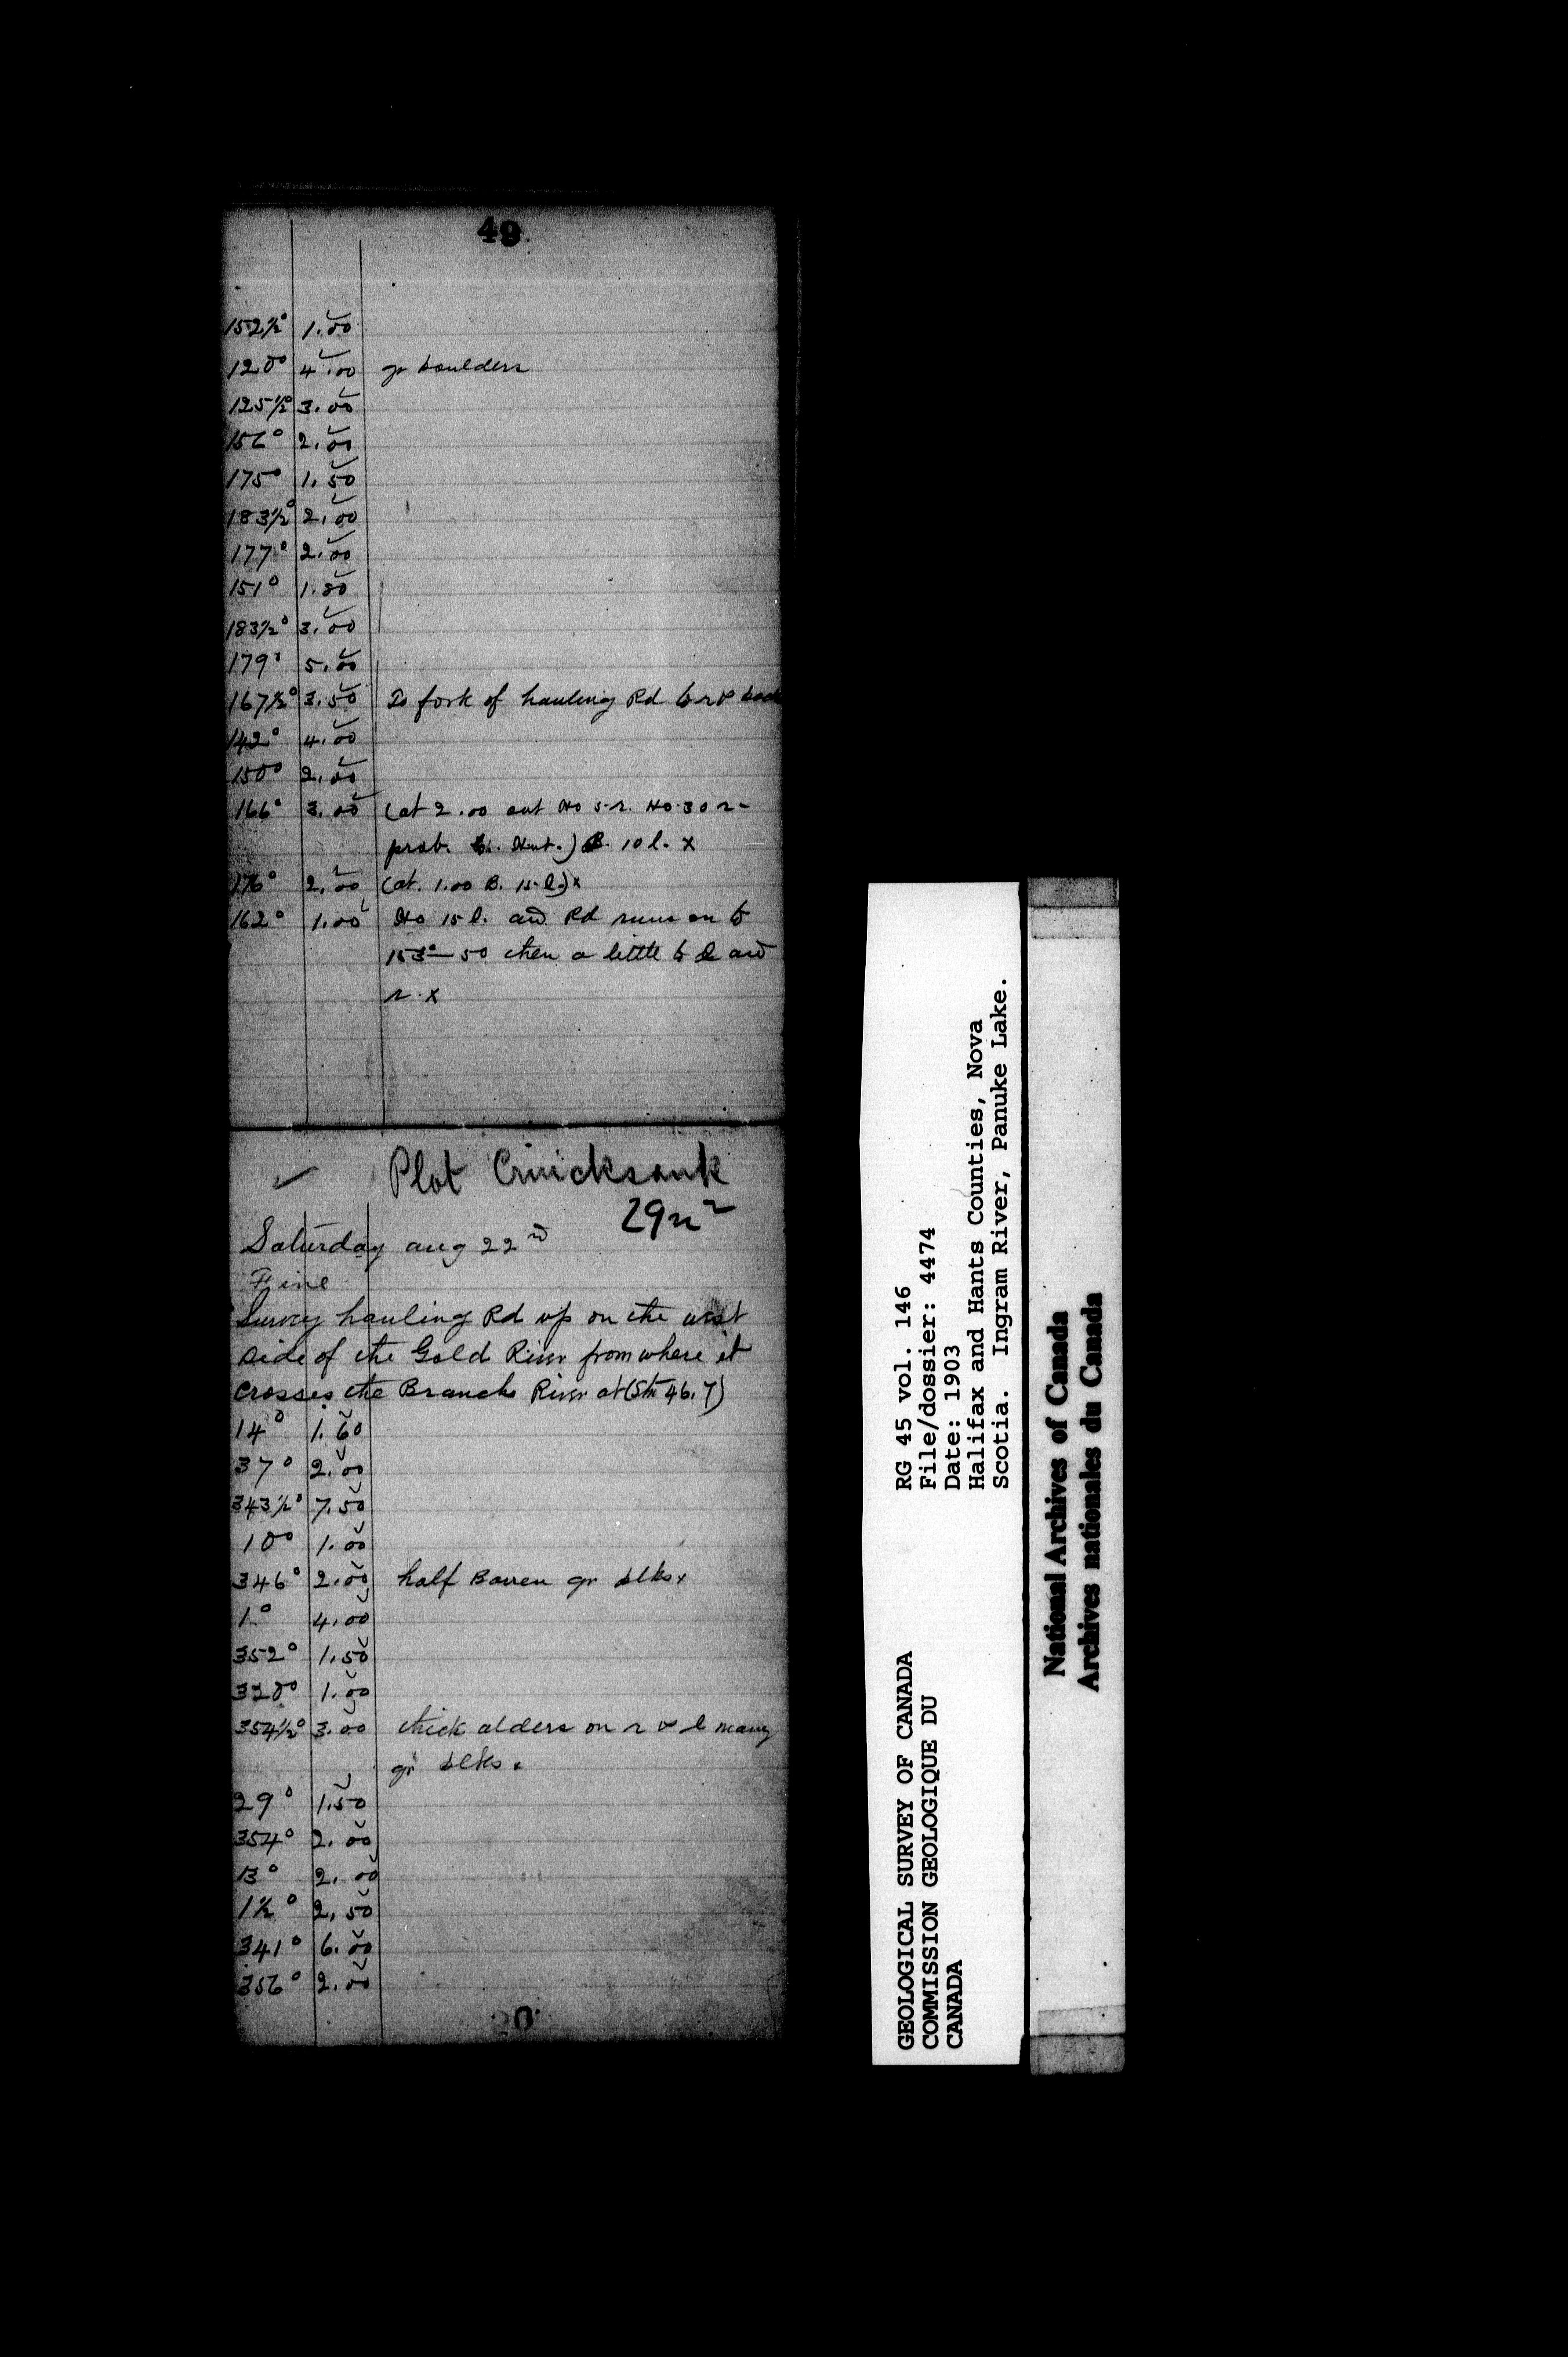 49
152½° 1.00
120° 4.00 gr boulders
125½° 3.00
156° 2.00
175° 1.50
183½° 2.00
177° 2.00
151° 1.80
183½° 3.00
179° 5.00
167½° 3.50 To fork of hauling Rd to r & back
142° 4.00
150° 2.00
166° 3.00 (at 2.00 out Ho 5 r. Ho 30 r-
prob. ) B. 10 l. x
176° 2.00 (at. 1.00 B. 15 l.) x
162° 1.00 Ho 15 l. and Rd runs on to
153° — 50 then a little to l and
r. x
Plot Cruicksank
29
Saturday aug 22nd
Fine
Survey hauling Rd up on the west
side of the Gold River from where it
crosses the Branch River at (Stn 46.7)
14° 1.60
37° 2.00
343½° 7.50
10° 1.00
346° 2.00 half Barren gr blks x
1° 4.00
352° 1.50
320° 1.00
354½° 3.00 thick alders on r & l many
gr blks x
29° 1.50
354° 2.00
13° 2.00
1½° 2.50
341° 6.00
356° 2.00
RG 45 vol. 146
File/dossier: 4474
Date: 1903
Halifax and Hants Counties, Nova
Scotia. Ingram River, Panuke Lake.
GEOLOGICAL SURVEY OF CANADA
COMMISSION GEOLOGIQUE DU
CANADA
National Archives of Canada
Archives nationales du Canada